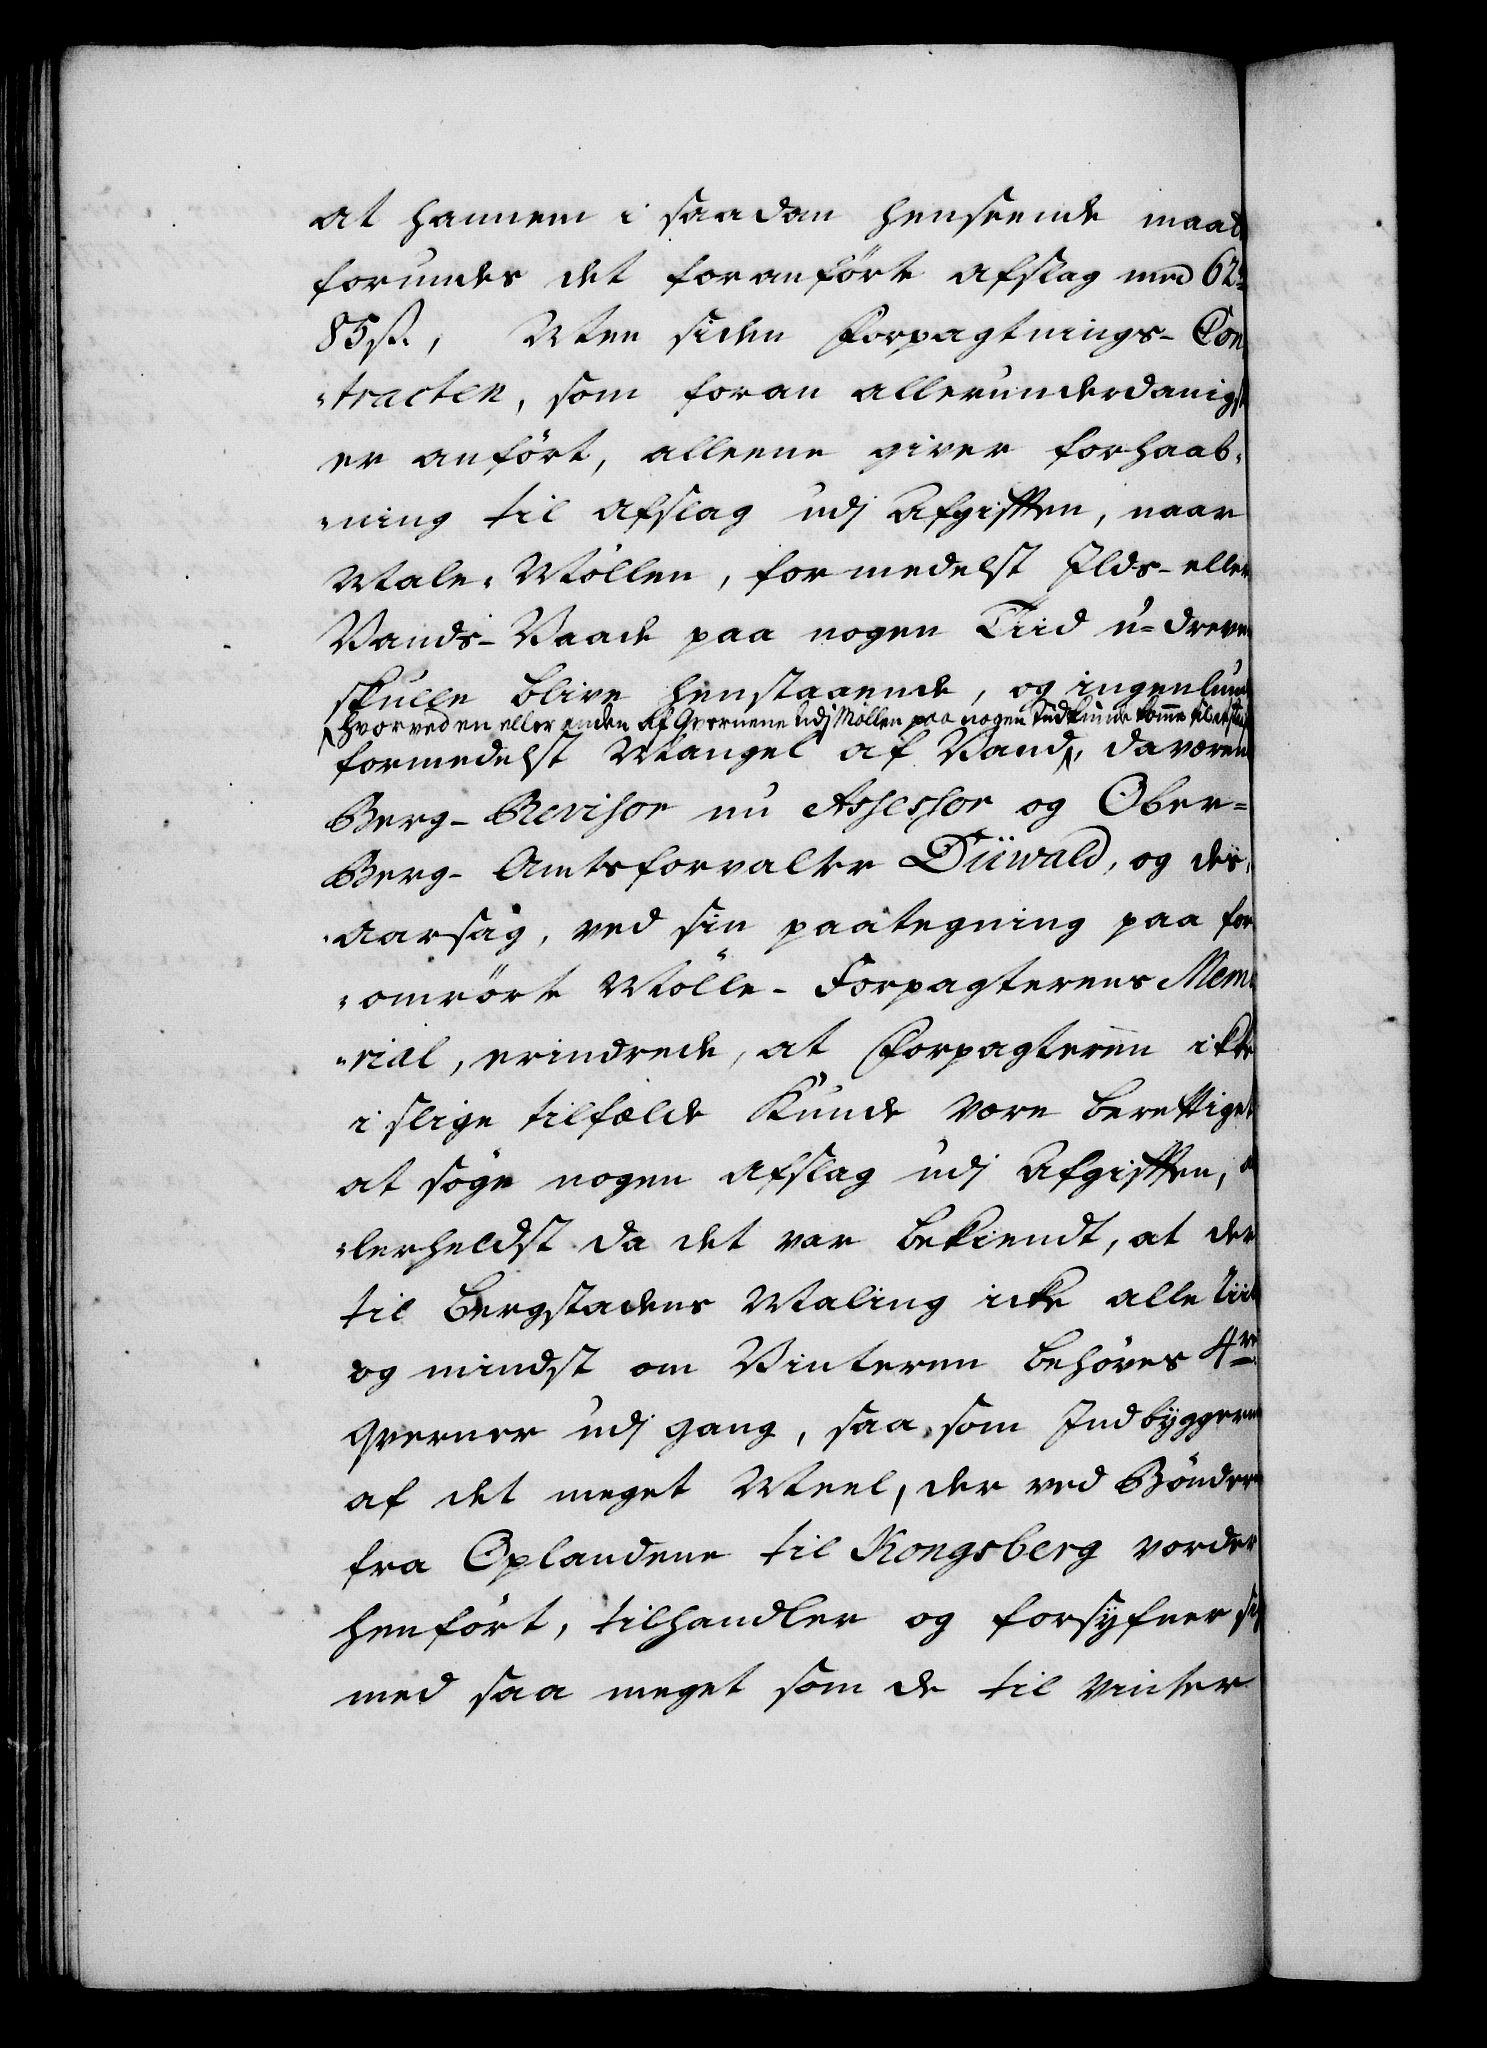 at hannem i saadan henseende maat
forundes det foranförte afslag med 62
85 ß., Men siden Forpagtnings- Con
"tracten, som foran allerunderdanigst
er anfört, alleene giver forhaab,
"ning til afslag udj Afgifften, naar
Male, Möllen, formedelst Ilds- eller
Vands- Vaade paa nogen Tiid u-dreven
skulle blive henstaaende, og ingenlund
hvorved en eller anden af Qvernene udj Möllen paa nogen Tid kunde komme til at staa
formedelst Mangel af Vand, daværen
Berg- Revisor nu Assessor og Ober=
Berg- Amtsforvalter Düwald, og des,
"aarsag, ved sin paategning paa for
"omrörte Mölle- Forpagterens Memo
"rial, erindrede, at Forpagteren ikke
i slige tilfælde kunde være berettiget
at söge nogen afslag udj Afgifften, a
"lerheldst da det var bekiendt, at der
til Bergstadens Maling icke alle Tiid
og mindst om Vinteren behöves 4re
Qverner udj gang, saa som Indbyggern
af det meget Meel, der ved Bönder
fra Oplandene til Kongsberg vorder
henfört, tilhandler og forsyfner sig
med saa meget som de til Vinter